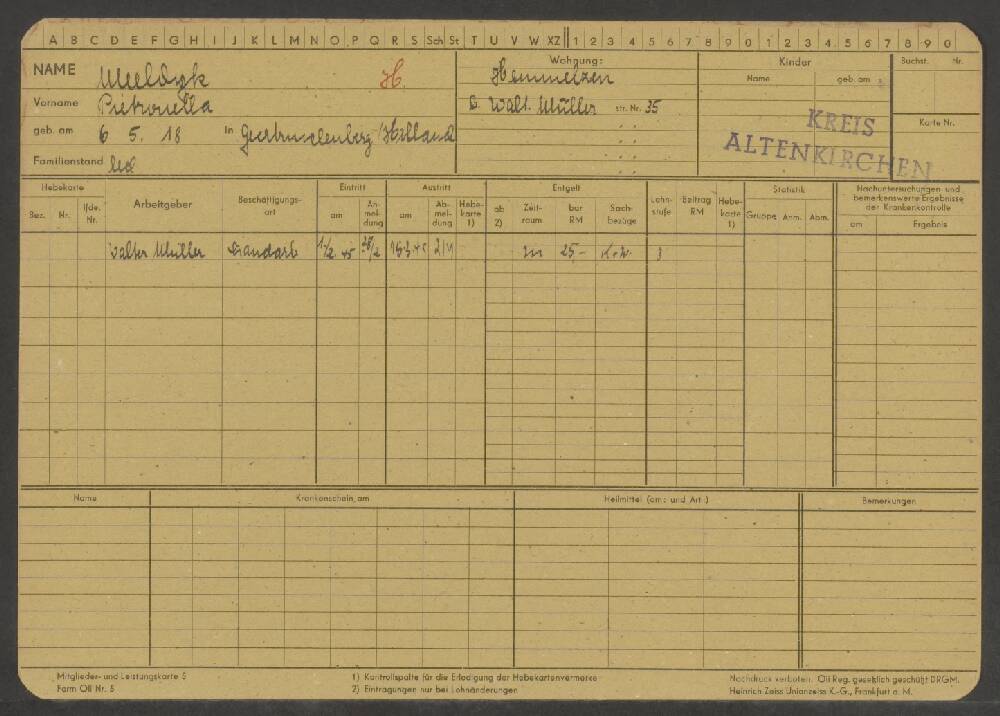 A B C D E F G H I J K L M N O P Q R S Sch St T U V W XZ 1 2 3 4 5 6 7 8 9 0 1 2 3 4 5 6 7 8 9 0
NAME H. Wohnung: Kinder Buchst. Nr.
Hemmelzen Name geb. am
Vorname Pietronella b. Walt. Müller str. Nr. 35
KREIS
ALTENKIRCHEN
Karte Nr.
geb. am 6 5. 18 in /Holland
Familienstand led
Hebekarte Arbeitgeber Beschäftigungsart Eintritt Austritt Hebekarte 1) Entgelt Lohnstufe Beitrag RM Hebekarte 1) Statistik Nachuntersuchungen und bemerkenswerte Ergebnisse der Krankenkontrolle
Bez. Nr. lfde. Nr. am Anmeldung am Abmeldung ab 2) Zeitraum bar RM Sachbezüge Gruppe Anm. Abm. am Ergebnis
Walter Müller Landarb 1/2. 45 15.3.45 2/4 m 25,- K.+W.
Name Krankenschein am Heilmittel (am: und Art:) Bemerkungen
Mitglieder- und Leistungskarte 5
Form Oli Nr. 5
1) Kontrollspalte für die Erledigung der Hebekartenvermerke
2) Eintragungen nur bei Lohnänderungen
Nachdruck verboten. Oli Reg. gesetzlich geschützt DRGM.
Heinrich Zeiss Unionzeiss K.-G., Frankfurt a. M.